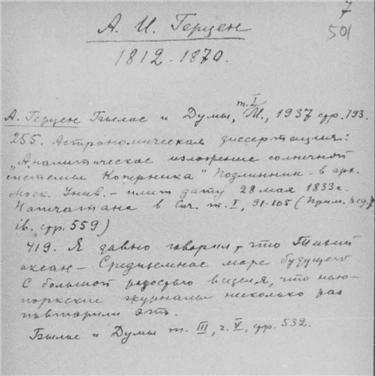 7
501
А. И. Герцен
1812-1870.
т. I
А. Герцен Былое и Думы, М., 1937 стр. 193.
255. Астрономическая диссертация:
"Аналитическое изложение солнечной
системы Коперника" Подлинник в арх.
Моск. Унив. - имеет дату 28 мая 1833г.
Напечатана в Соч. т. I, 91-105 (Прим. ред.
ib. стр. 559)
419. Я давно говорил, что Тихий
океан - Средиземное море будущего
С большой радостью видел я, что нью-
йоркские журналы несколько раз
повторили это.
Былое и Думы т. III, г. V, стр. 532.